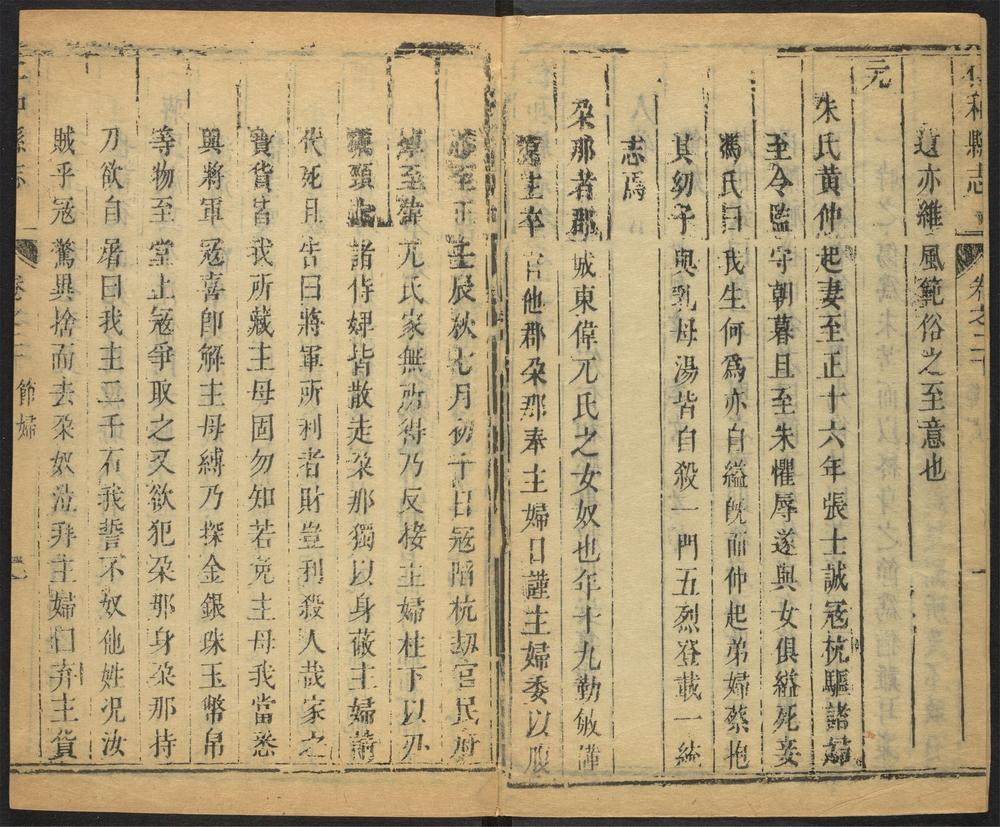 仁和縣志 卷之二 一
道亦維風範俗之至意也
元
朱氏黃仲起妻至正十六年張士誠冦杭驅諸婦
至令監守朝暮且至朱懼辱遂與女俱縊死妾
馮氏曰我生何爲亦自縊旣而仲起弟婦蔡抱
其幼子與乳母湯皆自殺一門五烈登載一統
志焉
朶那者郡城東偉兀氏之女奴也年十九勤敏謹
主卒官他郡朶那奉主婦日謹主婦委以腹
至正壬辰秋七月初十日冦陷杭劫官民府
至偉兀氏家無所得乃反接主婦柱下以刃
礪頸上諸侍婢皆散走朶那獨以身蔽主婦請
代死且告曰將軍所利者財豈利殺人哉家之
寶貨皆我所藏主母固勿知若免主母我當悉
與將軍冦喜卽解主母縛乃探金銀珠玉幣帛
等物至堂上冦爭取之又欲犯朶那身朶那持
刀欲自屠曰我主二千石我誓不奴他姓况汝
賊乎冦驚異捨而去朶奴泣拜主婦曰弃主貨
仁和縣志 卷之二 節婦